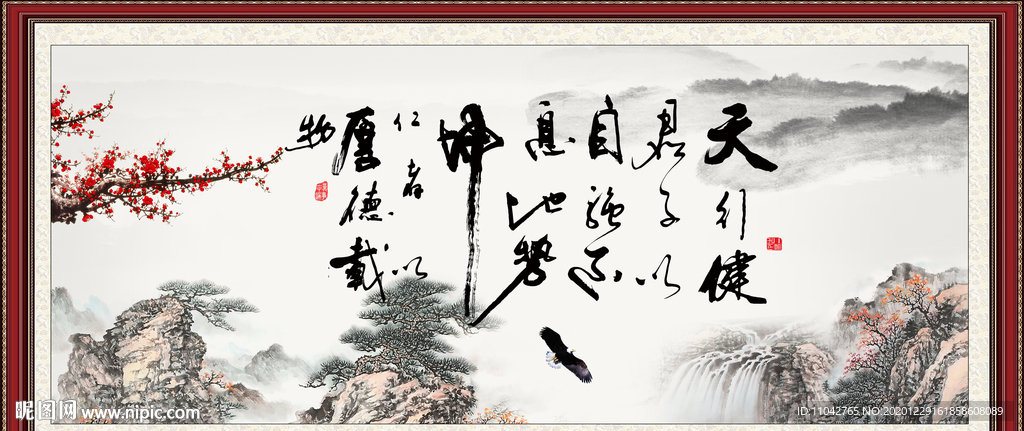 天行健
君子以
自強不
息地勢
坤
仁者以
厚德載
物
昵图网 www.nipic.com
ID:11042765 NO:20201229161858608089